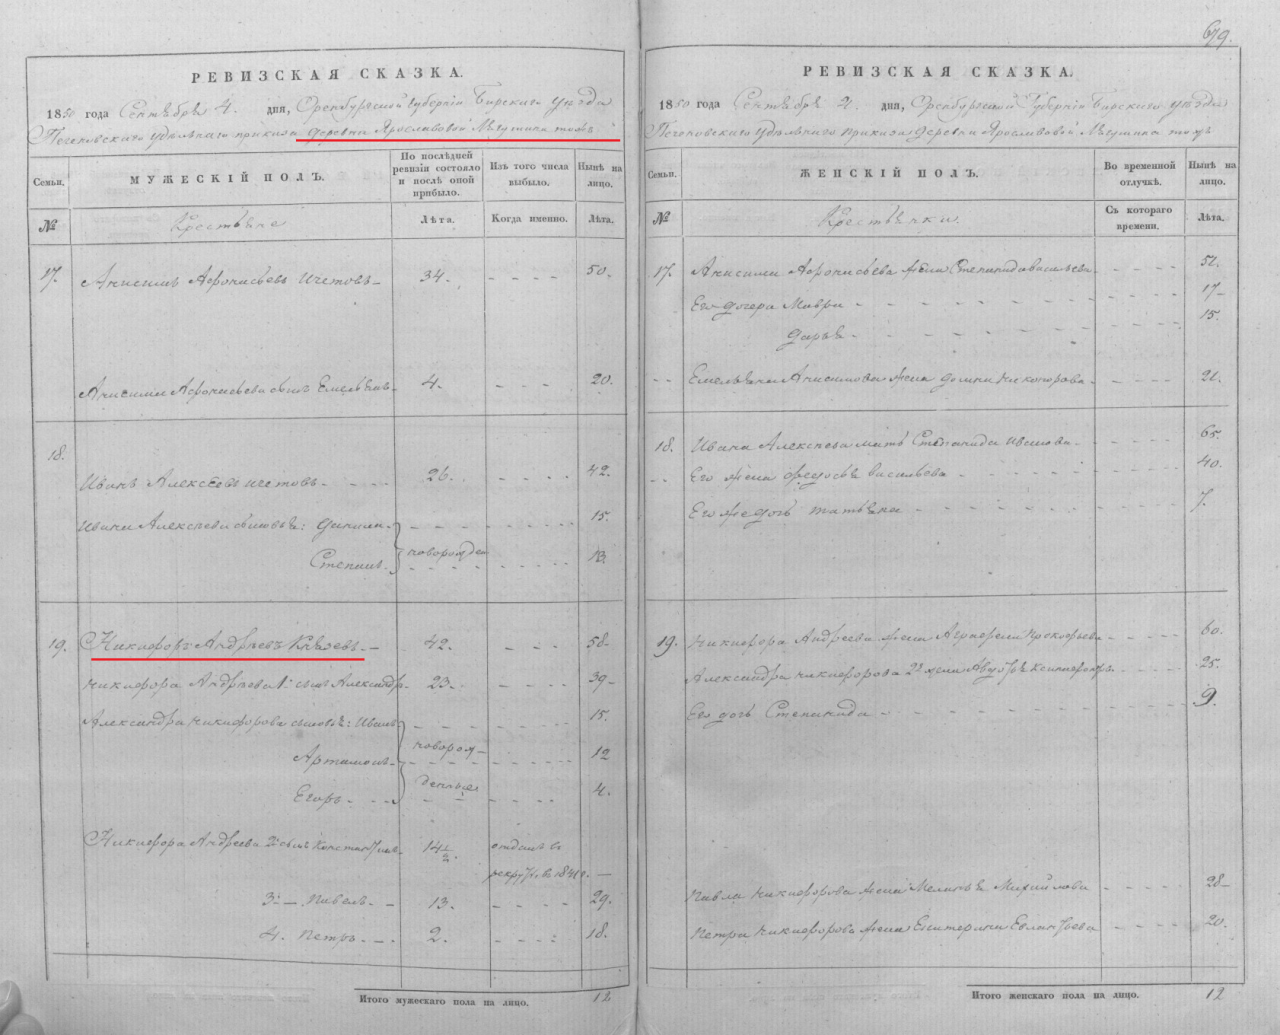 679.
РЕВИЗСКАЯ СКАЗКА.
1850 года Сентября 4. дня, Оренбургской губернiи Бирскаго уѣзда
удѣльнаго приказа деревни Ярославовой тожъ
Семьи. МУЖЕСКIЙ ПОЛЪ. По послѣдней ревизiи состояло и послѣ оной прибыло. Изъ того числа выбыло. Нынѣ на лицо.
№ Крестьяне Лѣта. Когда именно. Лѣта.
17. Анисимъ Афонасьевъ 34. 50.
Анисима Афонасьева сынъ Емельянъ 4. 20.
18.
Иванъ Алексѣевъ 26. 42.
Ивана Алексѣева сыновья: Данила 15.
Степанъ новорожден 13.
19. Никифоръ Андрѣевъ Князевъ 42. 58.
Никифора Андрѣева 1й сынъ Александръ 23. 39
Александра Никифорова сыновья: Иванъ 15.
Артамонъ новорож- 12
Егоръ денные 4.
Никифора Андреева 2й сынъ Константинъ 14 1/2. отданъ въ
рекруты въ
3й — Павелъ 13. 29.
4. Петръ 2. 18.
Итого мужескаго пола на лицо. 12
РЕВИЗСКАЯ СКАЗКА.
1850 года Сентября дня, Оренбургской Губернiи Бирскаго уѣзда
удѣльнаго приказа деревни Ярославовой тожъ
Семьи. ЖЕНСКIЙ ПОЛЪ. Во временной отлучкѣ. Нынѣ на лицо.
№ Крестьянки Съ котораго времени. Лѣта.
17. Анисима Афонасьева жена Степанида Васильева 52.
Его дочери Мавра 17
Дарья 15.
Емельяна Анисимова жена Домна Никонорова 21.
18. Ивана Алексѣева мать Степанида Иванова 65.
Его жена Федосья Васильева 40.
Его же дочь Татьяна 7.
19. Никифора Андреева жена Аграфена Прокофьева 60.
Александра Никифорова 2я жена 25.
Его дочь Степанида 9.
Павла Никифорова жена Маланья Михайлова 28
Петра Никифорова жена Екатерина 20.
Итого женскаго пола на лицо. 12